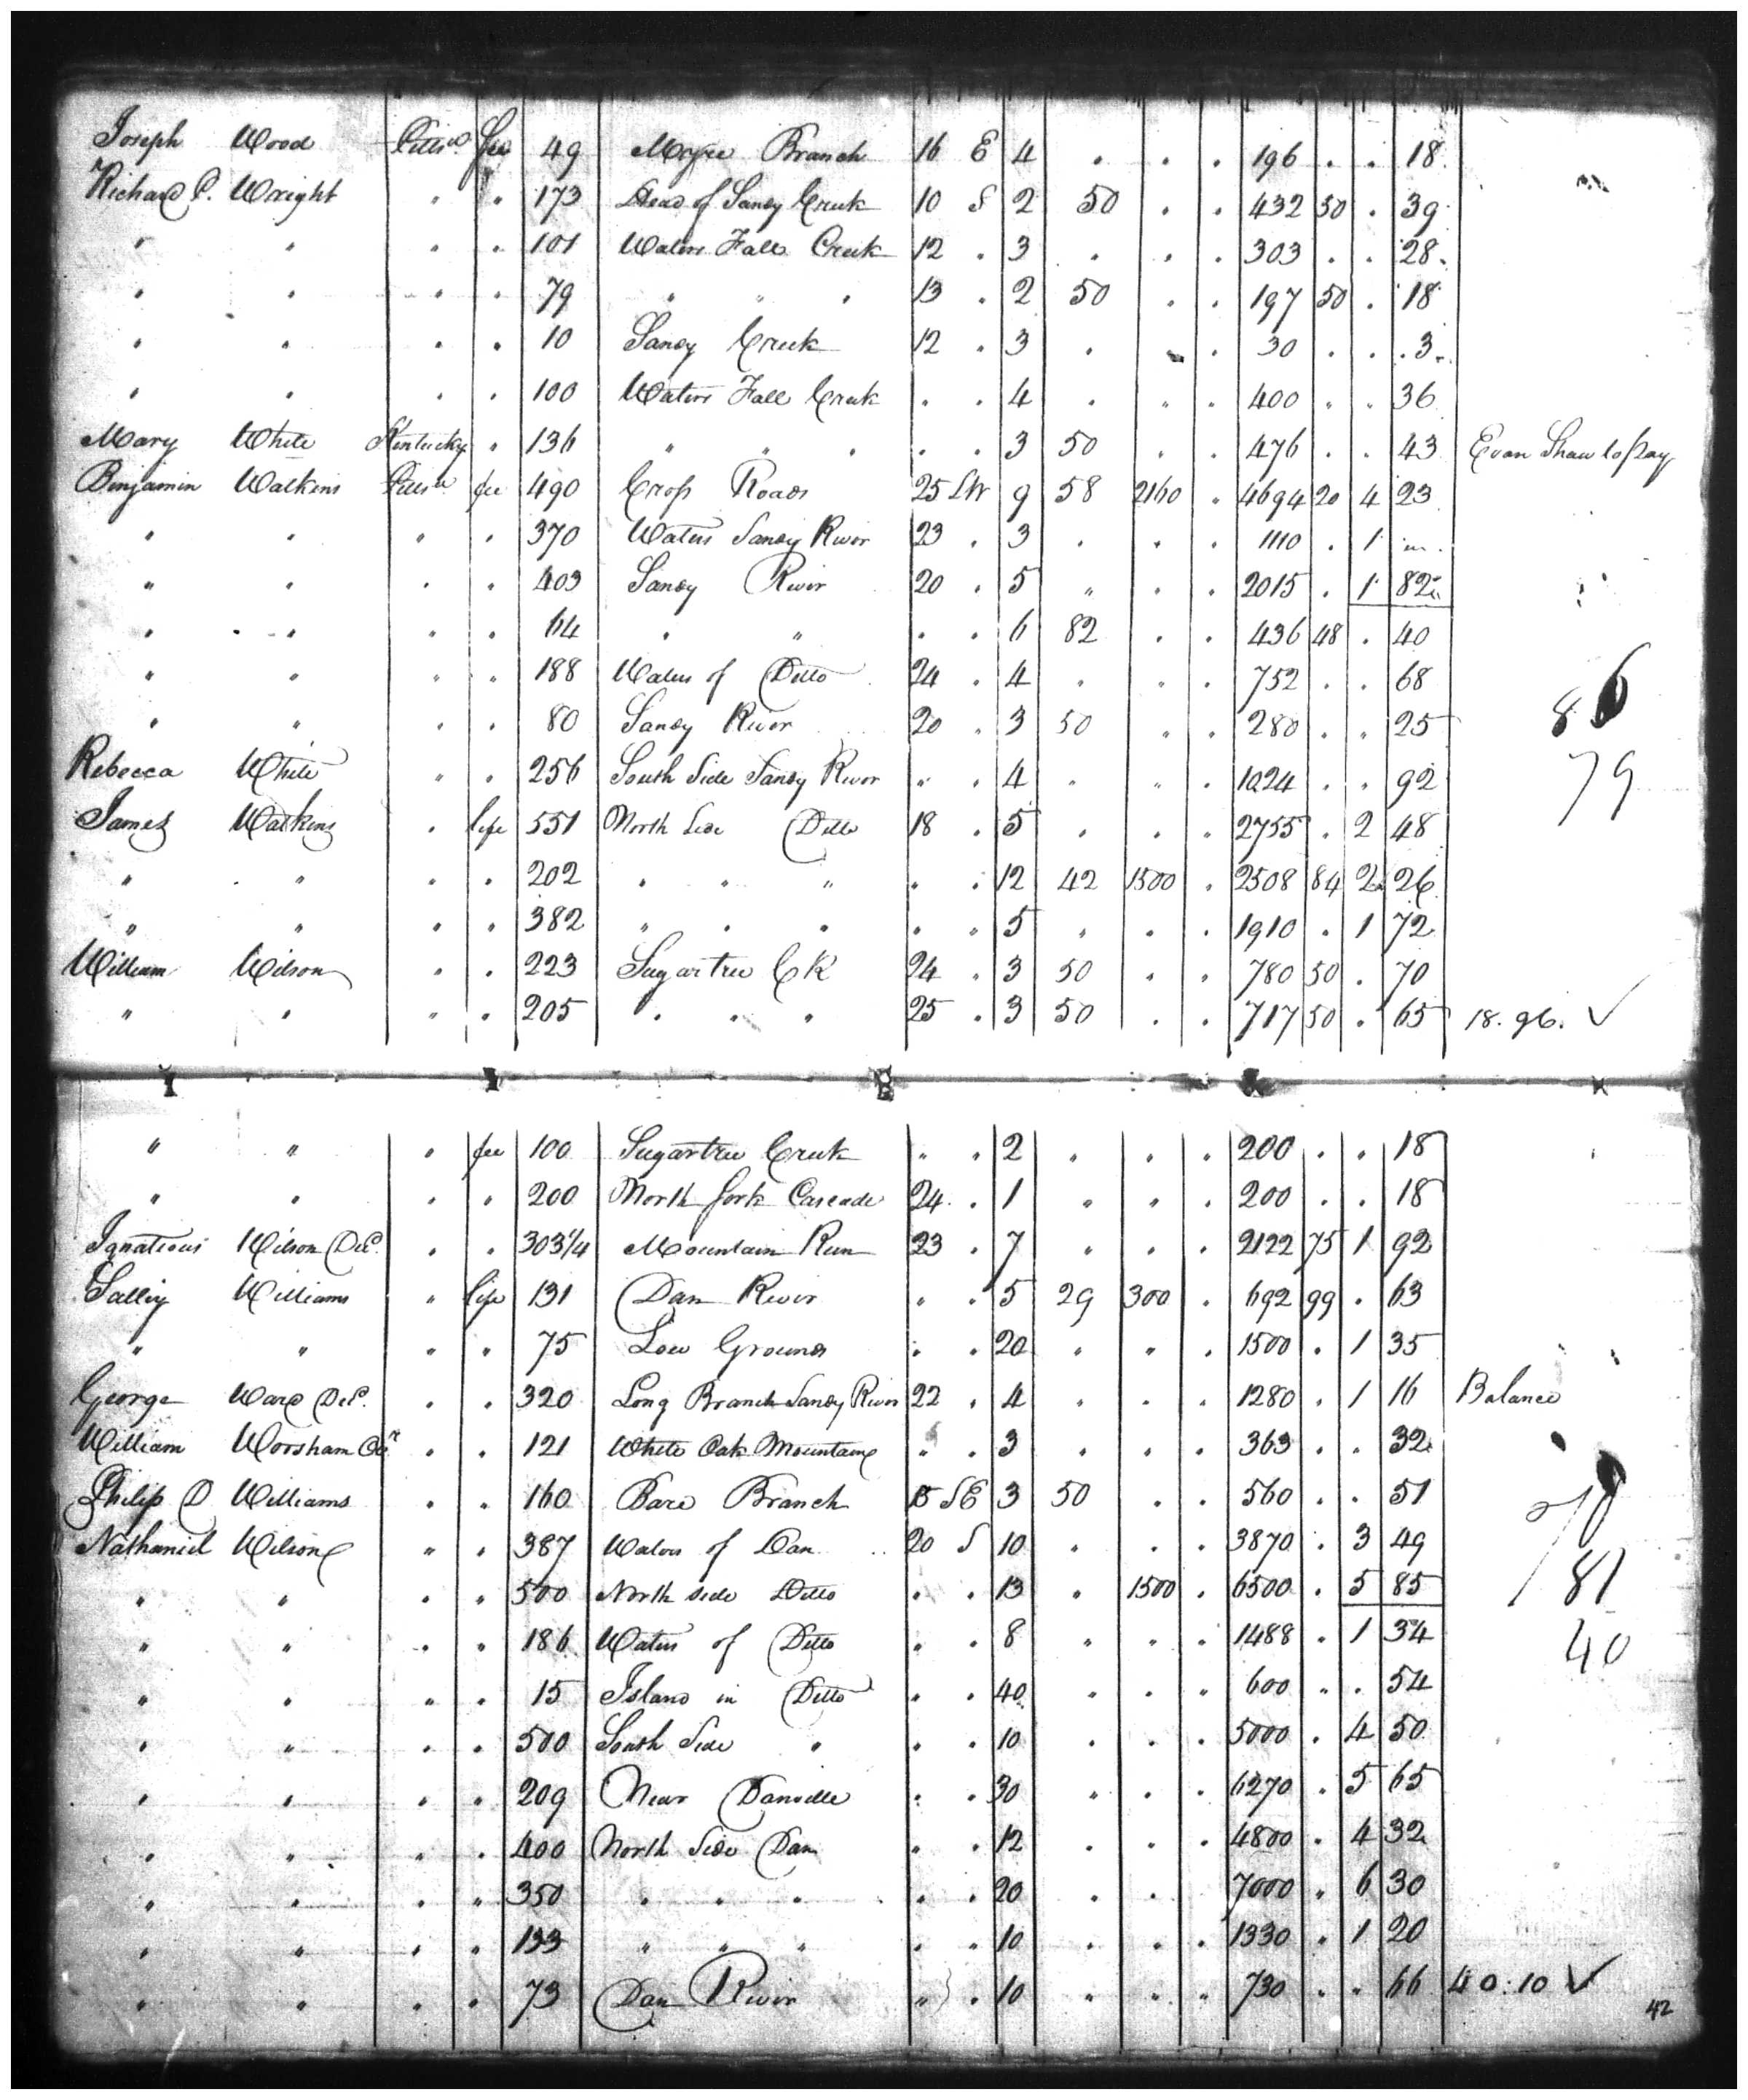 Joseph Wood Pittsa. fee 49 Magee Branch 16 E 4 . . . 196 . . 18
Richard P. Wright " " 173 Head of Sandy Creek 10 S 2 50 . . 432 50 . 39
" " " " 101 Waters Fall Creek 12 . 3 . . . 303 . . 28
" " " " 79 " " " 13 . 2 50 . . 197 50 . 18
" " " " 10 Sandy Creek 12 . 3 . . . 30 . . 3
" " " " 100 Waters Fall Creek . . 4 . " " 400 " " 36
Mary White Kentucky " 136 " " " . . 3 50 " . 476 . . 43 Evan Shaw to pay
Benjamin Watkins Pittsa. fee 490 Cross Roads 25 SW 9 58 2160 " 4694 20 4 23
" " " " 370 Waters Sandy River 23 . 3 . . . 1110 . 1 "
" " " " 403 Sandy River 20 . 5 " . . 2015 . 1 82
" " " " 64 " " . . 6 82 . . 436 48 . 40
" " " " 188 Waters of Ditto 24 . 4 " " . 752 . . 68
" " " " 80 Sandy River 20 . 3 50 " . 280 . " 25 86
Rebecca White " " 256 South Side Sandy River " . 4 . " . 1024 . . 92 79
James Watkins . life 551 North Side Ditto 18 . 5 . . " 2755 . 2 48
" " " " 202 " " " . . 12 42 1500 . 2508 84 2 26
" " " " 382 " " " . . 5 " . . 1910 . 1 72
William Wilson " . 223 Sugartree Ck 24 " 3 50 " " 780 50 . 70
" " " " 205 " " " 25 . 3 50 . . 717 50 . 65 18.96. ✓
" " " fee 100 Sugartree Creek " . 2 " " " 200 . . 18
" " " " 200 North fork Cascade 24 . 1 " " . 200 . . 18
Ignatious Wilson Decd. . . 303 1/4 Mountain Run 23 . 7 " . . 2122 75 1 92
Salley Williams " life 131 Dan River " . 5 29 300 . 692 99 . 63
" " " " 75 Low Grounds . . 20 " " . 1500 . 1 35
George Ward Decd. . . 320 Long Branch Sandy River 22 . 4 . . . 1280 . 1 16 Balance
William Worsham " " 121 White Oak Mountain " . 3 . . . 363 . . 32
Philip D Williams . . 160 Bare Branch 15 SE 3 50 . . 560 . . 51
Nathaniel Wilson " . 387 Waters of Dan 20 S 10 " . . 3870 . 3 49
" " " " 500 North side Ditto . . 13 " 1500 . 6500 . 5 85 81
" " " " 186 Waters of Ditto . . 8 " " . 1488 . 1 34 40
" " " " 15 Island in Ditto " . 40 " " " 600 " . 54
" " " " 500 South Side " . . 10 . . . 5000 . 4 50
" " " " 209 Near Danville . . 30 " . . 6270 . 5 65
" " " " 400 North Side Dan " . 12 . . . 4800 . 4 32
" " " " 350 " " " . . 20 . . 7000 " 6 30
" " " " 133 " " " . " 10 . . . 1330 " 1 20
" " " " 73 Dan River " . 10 " " " 730 " " 66 40.10 ✓
42